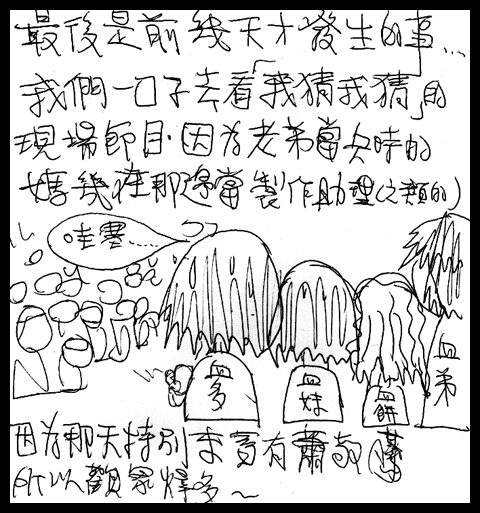 最後是前幾天才發生的事...
我們一口子去看「我猜我猜」的
現場節目.因為老弟當兵時的
媽幾在那邊當製作助理(之類的)
哇賽......
血多
血妹
血弟
因為那天特別來賓有蕭敬騰
所以觀眾爆多~